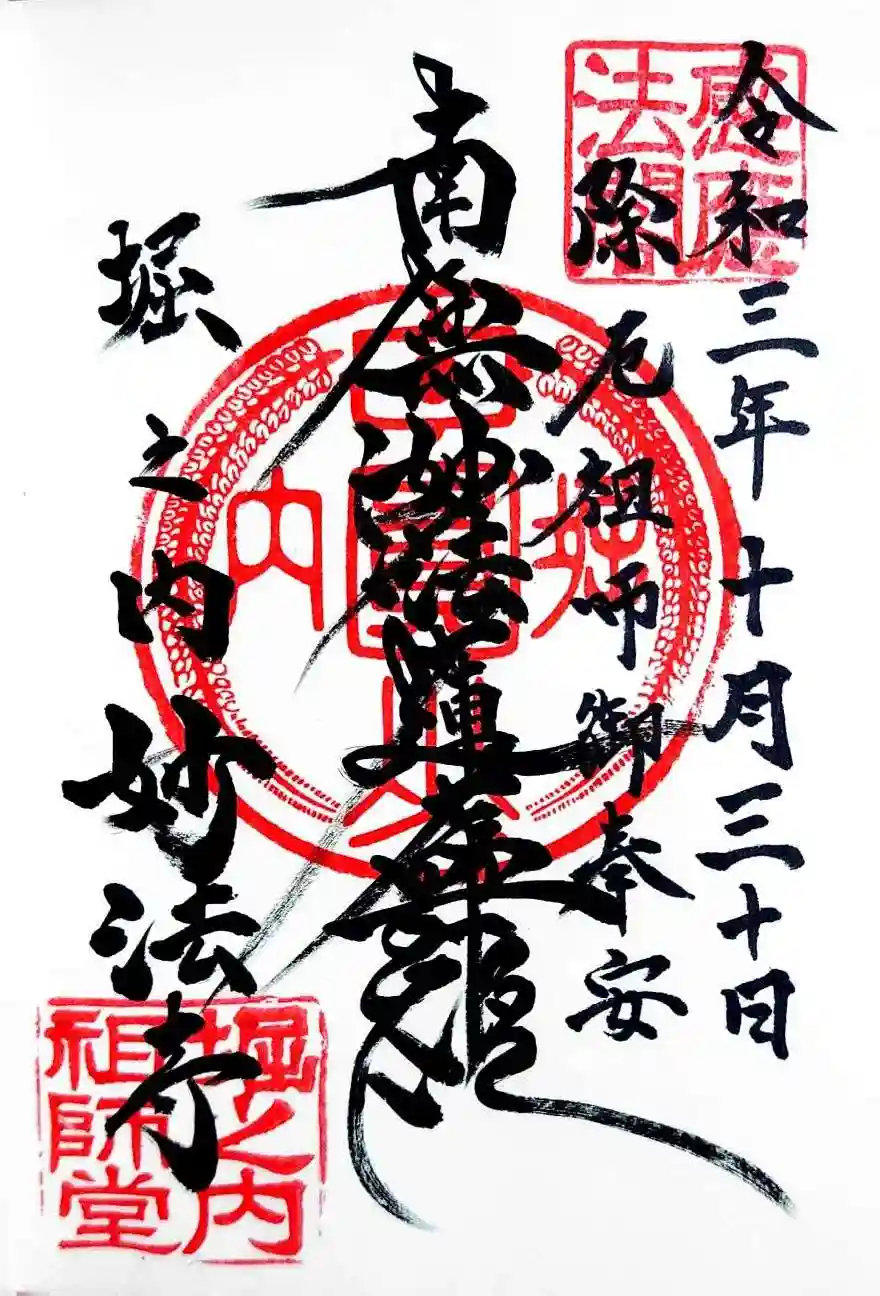 令和三年十月三十日
除厄祖師御奉安
南無妙法蓮華経
堀之内妙法寺
堀之内
祖師堂